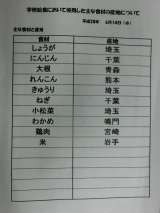 学校給食において使用した主な食材の産地について
平成28年 6月14日（火）
主な食材と産地
食材 産地
しょうが 埼玉
にんじん 千葉
大根 青森
れんこん 熊本
きゅうり 埼玉
ねぎ 千葉
小松菜 埼玉
わかめ 鳴門
鶏肉 宮崎
米 岩手